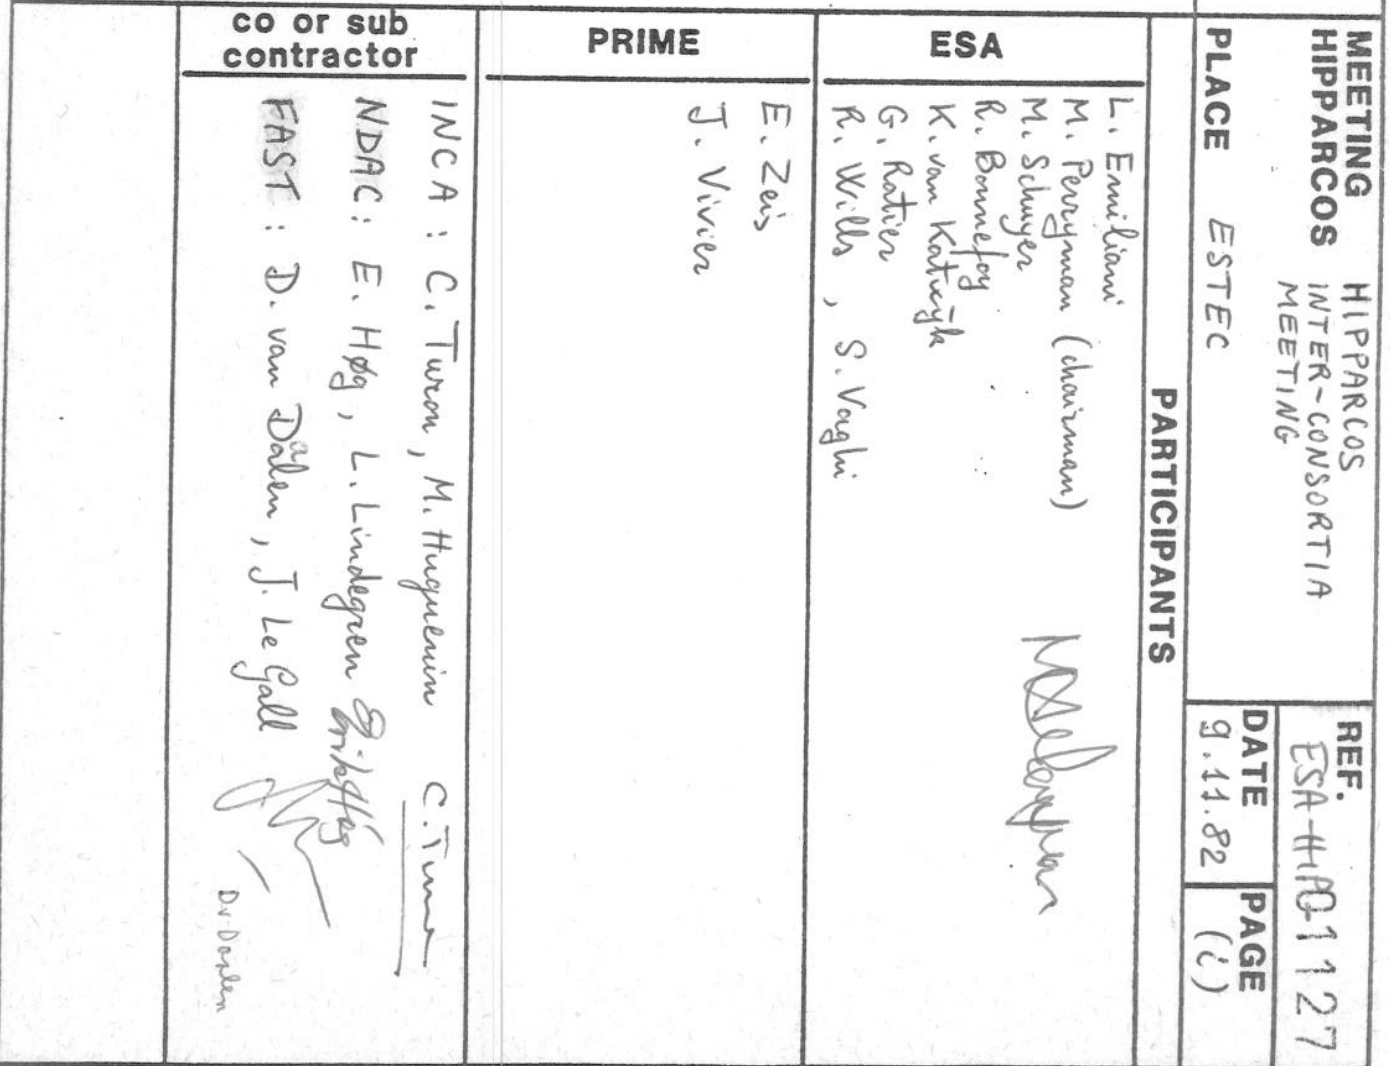 MEETING HIPPARCOS
HIPPARCOS INTER-CONSORTIA MEETING
REF.
ESA-HIP01127
PLACE ESTEC
DATE
9.11.82
PAGE
(i)
PARTICIPANTS
ESA
L. Emiliani
M. Perryman (chairman)
M. Schuyer
R. Bonnefoy
K. van Katwijk
G. Ratier
R. Wills, S. Vaghi
PRIME
E. Zeis
J. Vivier
co or sub
contractor
INCA: C. Turon, M. Huguenin C. Turon
NDAC: E. Høg, L. Lindegren Erik Høg
FAST: D. van Dalen, J. Le Gall
D.v.Daalen